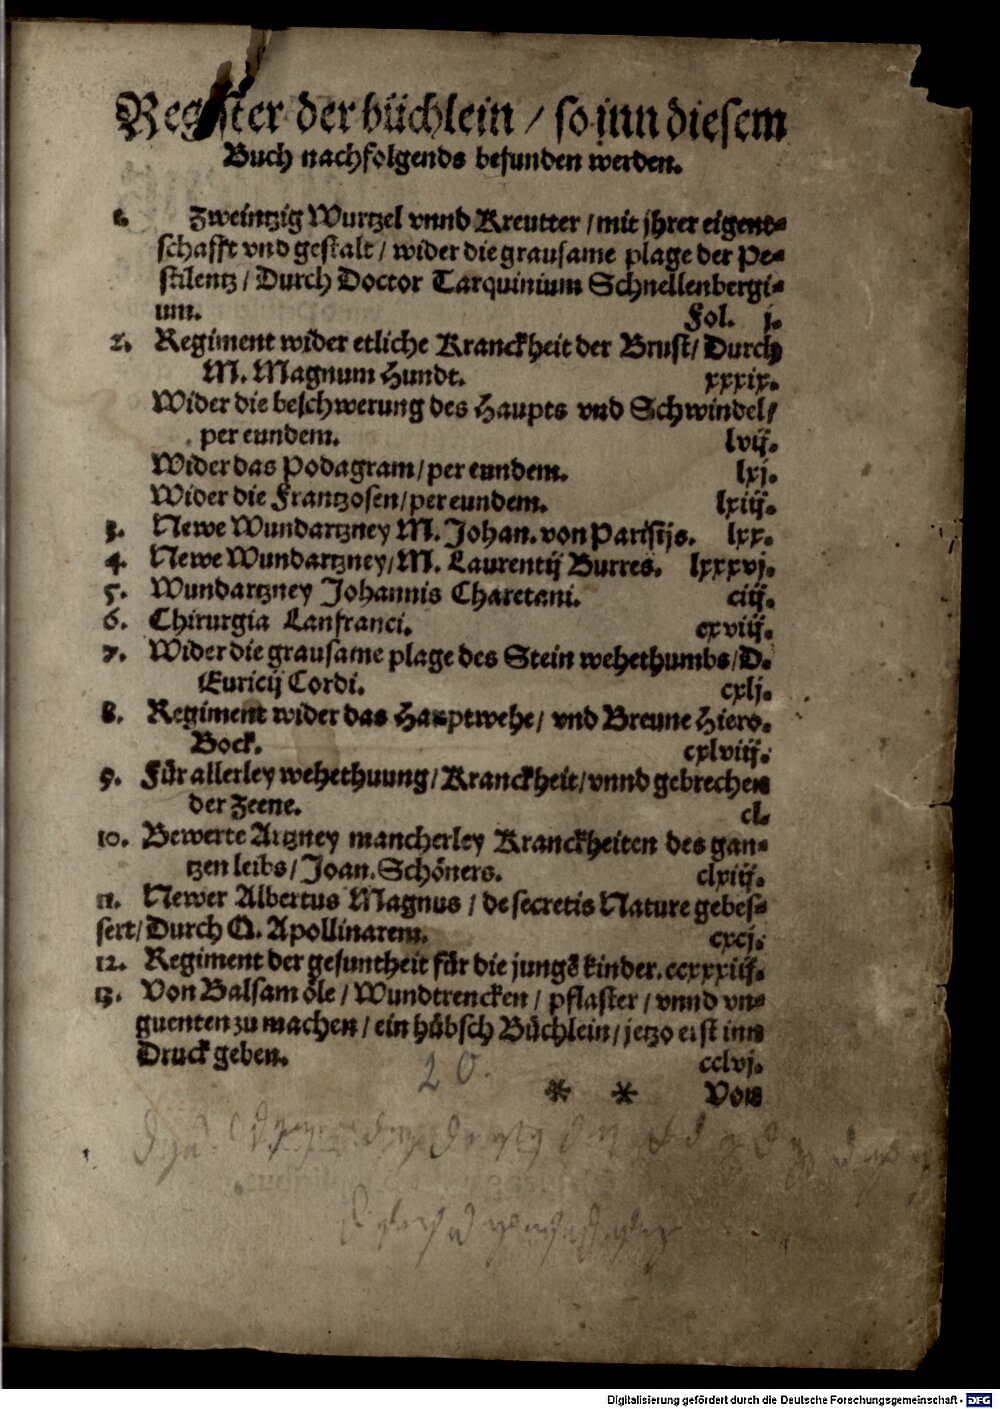 Register der büchlein / so jnn diesem
Buch nachfolgends befunden werden.
1. Zweintzig Wurtzel vnnd Kreutter / mit jhrer eigent-
schafft vnd gestalt / wider die grausame plage der Pe-
stilentz / Durch Doctor Tarquinium Schnellenbergi-
um. Fol. j.
2. Regiment wider etliche Kranckheit der Brust / Durch
M. Magnum Hundt. xxxix.
Wider die beschwerung des Haupts vnd Schwindel /
per eundem. lvij.
Wider das Podagram / per eundem. lxj.
Wider die Frantzosen / per eundem. lxiij.
3. Newe Wundartzney M. Johan. von Parisijs. lxx.
4. Newe Wundartzney / M. Laurentij Burres. lxxxvj.
5. Wundartzney Johannis Charetani. ciij.
6. Chirurgia Lanfranci. cxviij.
7. Wider die grausame plage des Stein wehethumbs / D.
Euricij Cordi. cxlj.
8. Regiment wider das Hauptwehe / vnd Breune Hiero.
Bock. cxlviij.
9. Für allerley wehethuung / Kranckheit / vnnd gebrechen
der Zeene. cl.
10. Bewerte Artzney mancherley Kranckheiten des gan-
tzen leibs / Joan. Schöners. clxiij.
11. Newer Albertus Magnus / de secretis Nature gebes-
sert / Durch Q. Apollinarem. cxcj.
12. Regiment der gesuntheit für die jungē kinder. ccxxxiij.
13. Von Balsam öle / Wundtrencken / pflaster / vnnd vn-
guenten zu machen / ein hübsch Büchlein / jetzo erst inn
Druck geben. cclvj.
20.
* * Von
Digitalisierung gefördert durch die Deutsche Forschungsgemeinschaft - DFG